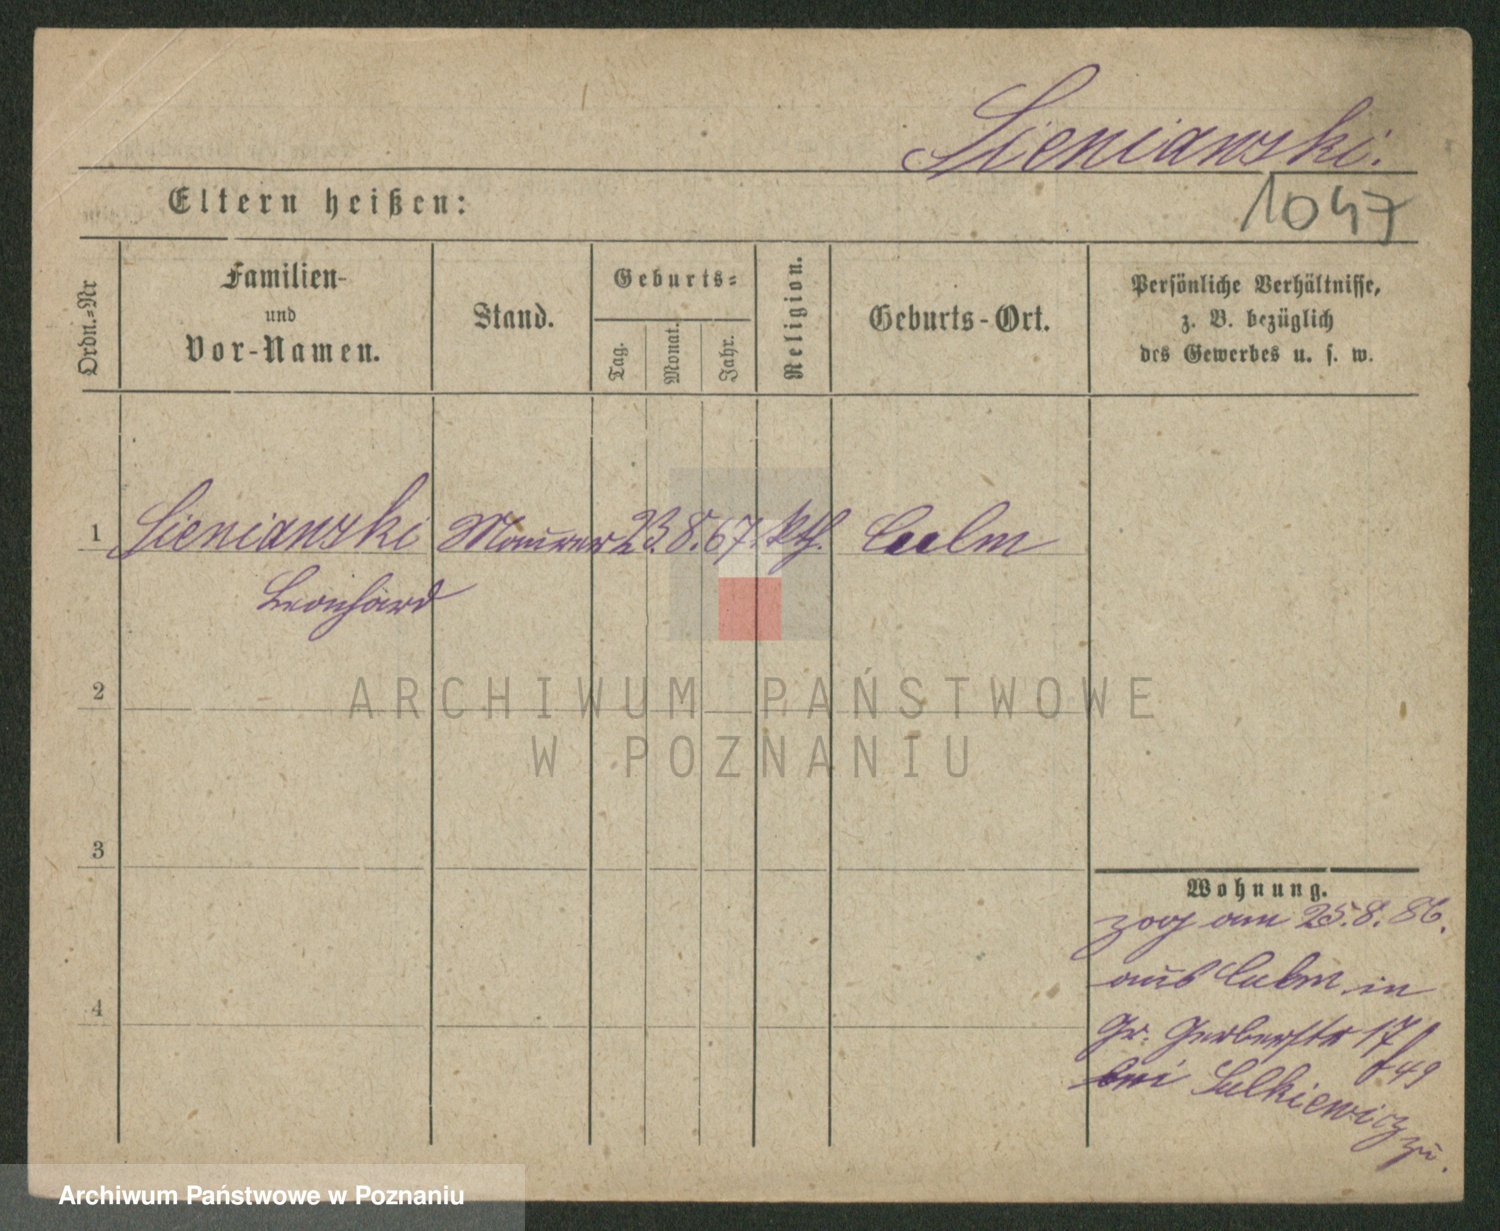 Sieniawski.
1047
Eltern heißen:
Ordn.=Nr
Familien-
und
Vor-Namen.
Stand.
Geburts=
Tag.
Monat.
Jahr.
Religion.
Geburts-Ort.
Persönliche Verhältnisse,
z. B. bezüglich
des Gewerbes u. s. w.
1 Sieniawski Maurer 23. 8. 67. kth. Culm
Leonhard
2
ARCHIWUM PAŃSTWOWE
W POZNANIU
3
4
Wohnung.
zog am 25.8.86.
aus Culm in
Gr. Gerberstr 17
bei Sulkiewicz zu.
Archiwum Państwowe w Poznaniu